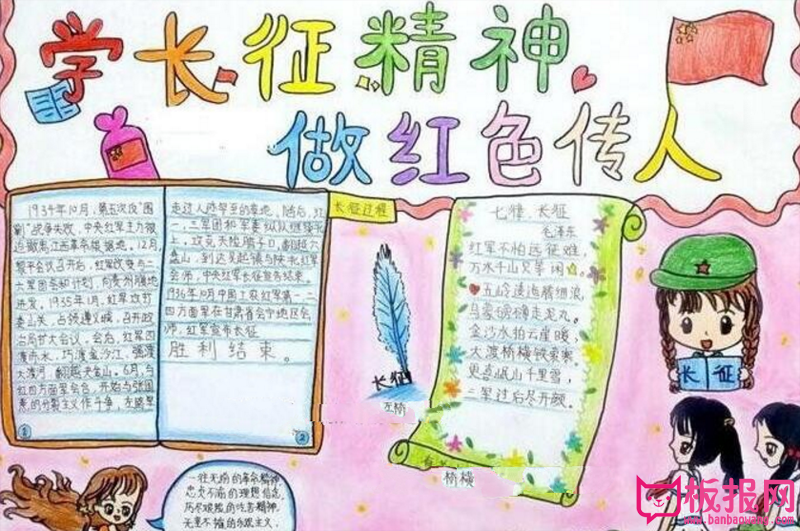 学长征精神
做红色传人
长征过程
1934年10月，第五次反“围
剿”战争失败，中央红军主力被
迫撤离江西革命根据地。12月
黎平会议召开后，红军改变与二
六军团会和计划，向贵州腹地
进发，1935年1月，红军攻打
娄山关，占领遵义城，召开政
治局扩大会议，会后，红军四
渡赤水，巧渡金沙江，强渡
大渡河，翻越夹金山。6月，与
红四方面军会合，开始与张国
焘的分裂主义作斗争，
①
走过人迹罕至的草地，随后，红一
、三军团和军委纵队继续北
上，攻克天险腊子口，翻越六
盘山，到达吴起镇与陕北红军
会师，中央红军长征宣告结束。
1936年10月中国工农红军第一、二
四方面军在甘肃省会宁地区会
师，红军宣布长征
胜利结束。
②
长征
左桥
七律·长征
毛泽东
红军不怕远征难，
万水千山只等闲。
五岭逶迤腾细浪，
乌蒙磅礴走泥丸。
金沙水拍云崖暖，
大渡桥横铁索寒。
更喜岷山千里雪，
三军过后尽开颜。
桥横
长征
一往无前的革命精神
忠贞不渝的理想信念，
历尽艰险的吃苦精神，
无坚不摧的乐观主义，
板报网
www.banbaowang.com